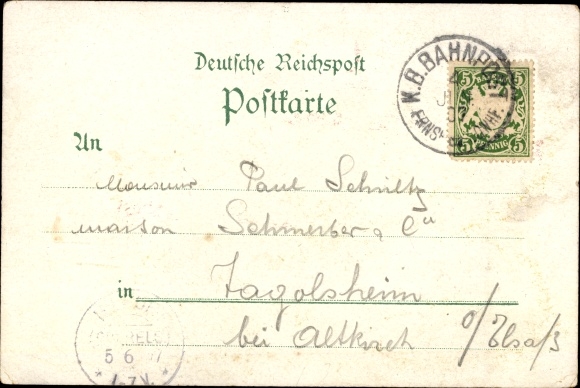 Deutsche Reichspost
Postkarte
K.B.BAHNPOST
5 5
5 PFENNIG 5
An
Monsieur Paul Schultz
maison Schmerber & Cie
in Tagolsheim
bei Altkirch o/Elsaß
5 6